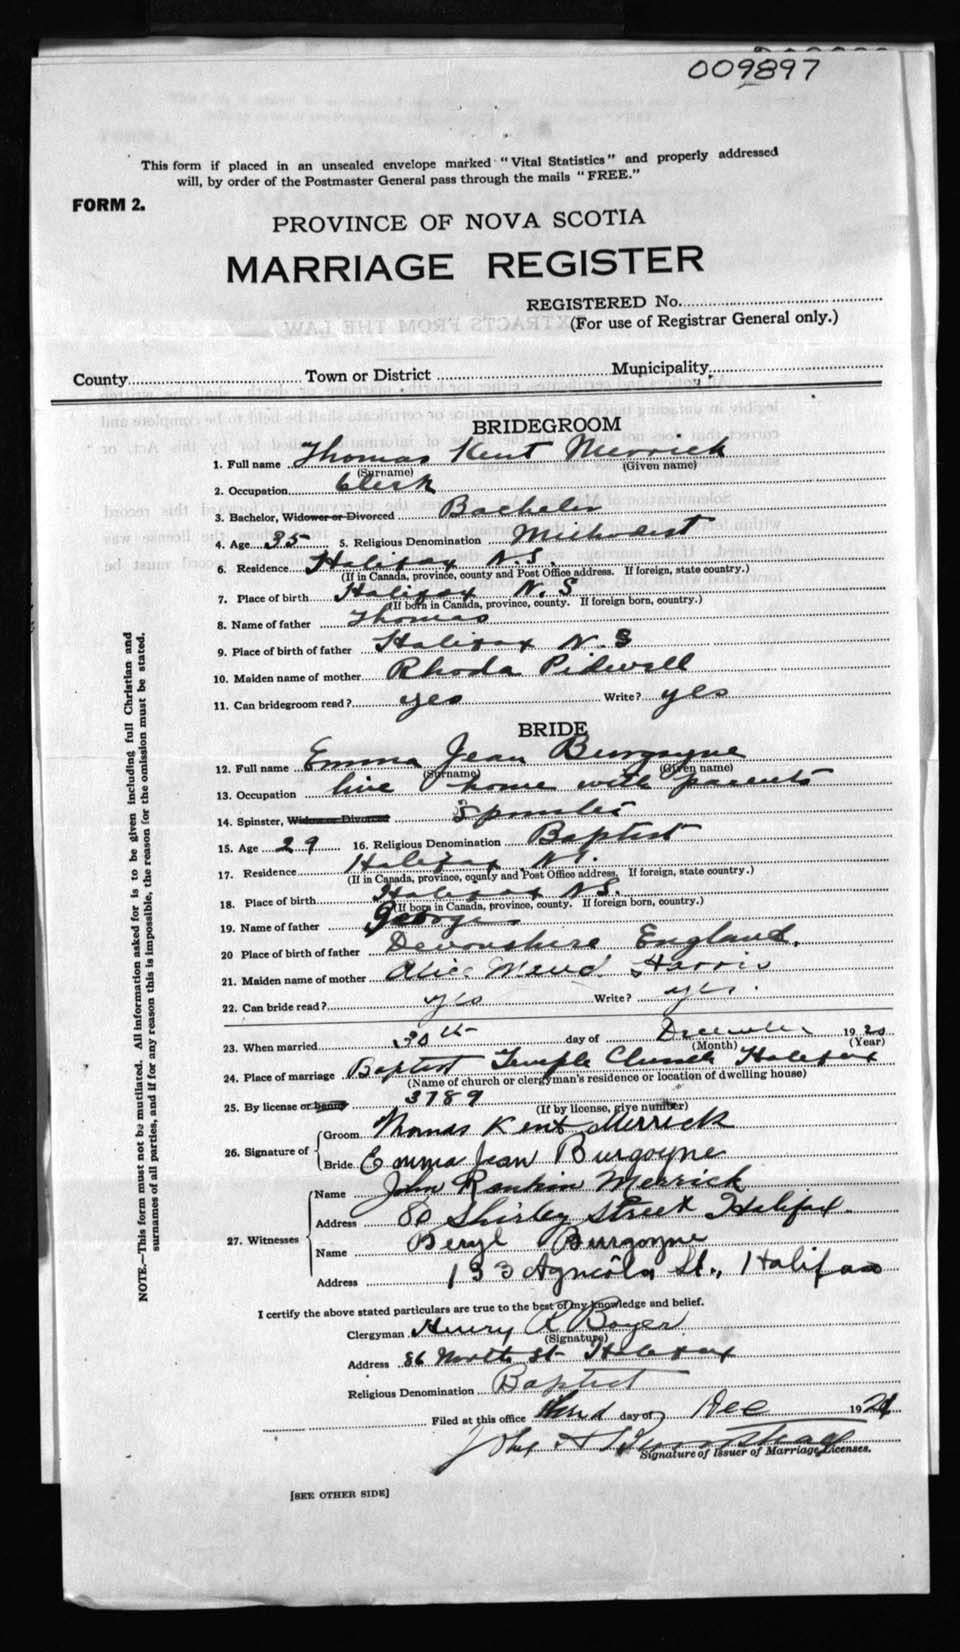 009897
This form if placed in an unsealed envelope marked "Vital Statistics" and properly addressed
will, by order of the Postmaster General pass through the mails "FREE."
FORM 2.
PROVINCE OF NOVA SCOTIA
MARRIAGE REGISTER
REGISTERED No.
(For use of Registrar General only.)
County Town or District Municipality
BRIDEGROOM
1. Full name Thomas Kent Merrick
(Surname) (Given name)
2. Occupation Clerk
3. Bachelor, Widower or Divorced Bachelor
4. Age 35 5. Religious Denomination Methodist
6. Residence Halifax N.S.
(If in Canada, province, county and Post Office address. If foreign, state country.)
7. Place of birth Halifax N.S
(If born in Canada, province, county. If foreign born, country.)
8. Name of father Thomas
9. Place of birth of father Halifax N.S
10. Maiden name of mother Rhoda Pidwell
11. Can bridegroom read? yes Write? yes
BRIDE
12. Full name Emma Jean Burgoyne
(Surname) (Given name)
13. Occupation live home with parents
14. Spinster, Widow or Divorced Spinster
15. Age 29 16. Religious Denomination Baptist
17. Residence Halifax N.S.
(If in Canada, province, county and Post Office address. If foreign, state country.)
18. Place of birth Halifax N.S.
(If born in Canada, province, county. If foreign born, country.)
19. Name of father George
20 Place of birth of father Devonshire England.
21. Maiden name of mother Alice Harris
22. Can bride read? yes Write? yes.
23. When married 30th day of December 1920
(Month) (Year)
24. Place of marriage Baptist Temple Church Halifax
(Name of church or clergyman's residence or location of dwelling house)
25. By license or banns 3789
(If by license, give number)
26. Signature of Groom Thomas Kent Merrick
Bride Emma Jean Burgoyne
27. Witnesses Name John Rankin Merrick
Address 80 Shirley Street Halifax.
Name Beryl Burgoyne
Address 133 Agricola St., Halifax
I certify the above stated particulars are true to the best of my knowledge and belief.
Clergyman Henry R Boyer
(Signature)
Address 86 North St Halifax
Religious Denomination Baptist
Filed at this office day of Dec 192
Signature of Issuer of Marriage Licenses.
[SEE OTHER SIDE]
NOTE.—This form must not be mutilated. All information asked for is to be given including full Christian and
surnames of all parties, and if for any reason this is impossible, the reason for the omission must be stated.